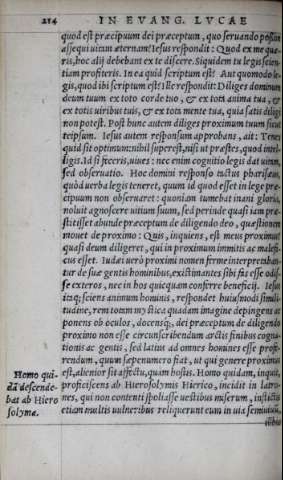 214 IN EVANG. LVCAE
quod est præcipuum dei præceptum, quo seruando possim
assequi uitam æternam? Iesus respondit: Quod ex me quæ-
ris, hoc alij debebant ex te discere. Siquidem tu legis scien-
tiam profiteris. In ea quid scriptum est? Aut quomodo le-
gis, quod ibi scriptum est? Ille respondit: Diliges dominum
deum tuum ex toto corde tuo, & ex tota anima tua, &
ex totis uiribus tuis, & ex tota mente tua, quia satis diligi
non potest. Post hunc autem diliges proximum tuum sicut
teipsum. Iesus autem responsum approbans, ait: Tenes
quid sit optimum: nihil superest, nisi ut præstes, quod intel-
ligis. Id si feceris, uiues: nec enim cognitio legis dat uitam,
sed obseruatio. Hoc domini responso tactus pharisæus,
quòd uerba legis teneret, quum id quod esset in lege præ-
cipuum non obseruaret: quoniam tumebat inani gloria,
noluit agnoscere uitium suum, sed perinde quasi iam præ-
stitisset abunde præceptum de diligendo deo, quæstionem
mouet de proximo: Quis, inquiens, est meus proximus?
quasi deum diligeret, qui in proximum immitis ac malefi-
cus esset. Iudæi uerò proximi nomen ferme interpretaban-
tur de suæ gentis hominibus, existimantes sibi fas esse odis-
se exteros, nec in hos quicquam conferre beneficij. Iesus
itaq; sciens animum hominis, respondet huiusmodi simili-
tudine, rem totam mystica quadam imagine depingens ac
ponens ob oculos, docensq;, dei præceptum de diligendo
proximo non esse circunscribendum arctis finibus cogna-
tionis ac gentis, sed latius ad omnes homines esse profe-
rendum, quum sæpenumero fiat, ut qui genere proximus
est, alienior sit affectu, quàm hostis. Homo quidam, inquit,
proficiscens ab Hierosolymis Hierico, incidit in latro-
nes, qui non contenti spoliasse uestibus miserum, inflictis
etiam multis uulneribus reliquerunt eum in uia semiuiuũ,
Homo qui-
dã descende-
bat ab Hiero
solyma.